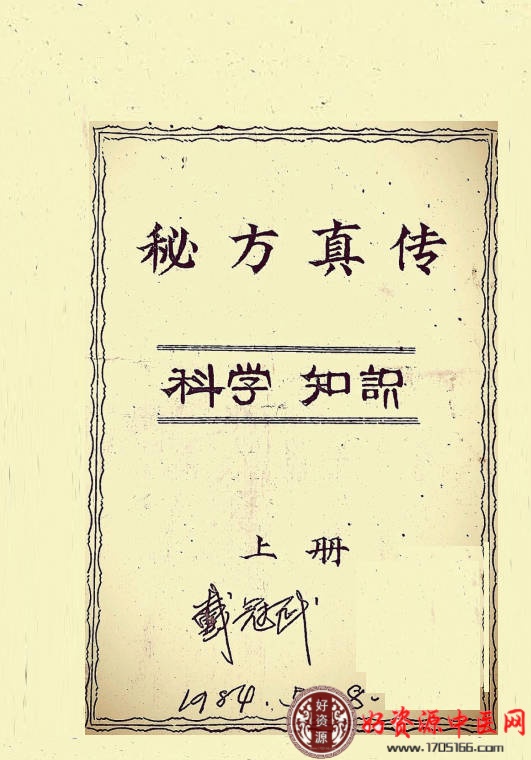 秘方真传
科学 知识
上册
戴冠
1984.5
好资源
好资源中医网
www.1705166.com